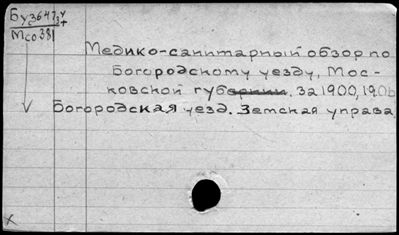 Бу3647
Мсо381
Медико-санитарный обзор по
Богородскому уезду, Мос-
ковской губернии. за 1900, 1906
Богородская уезд. Земская управа.
х